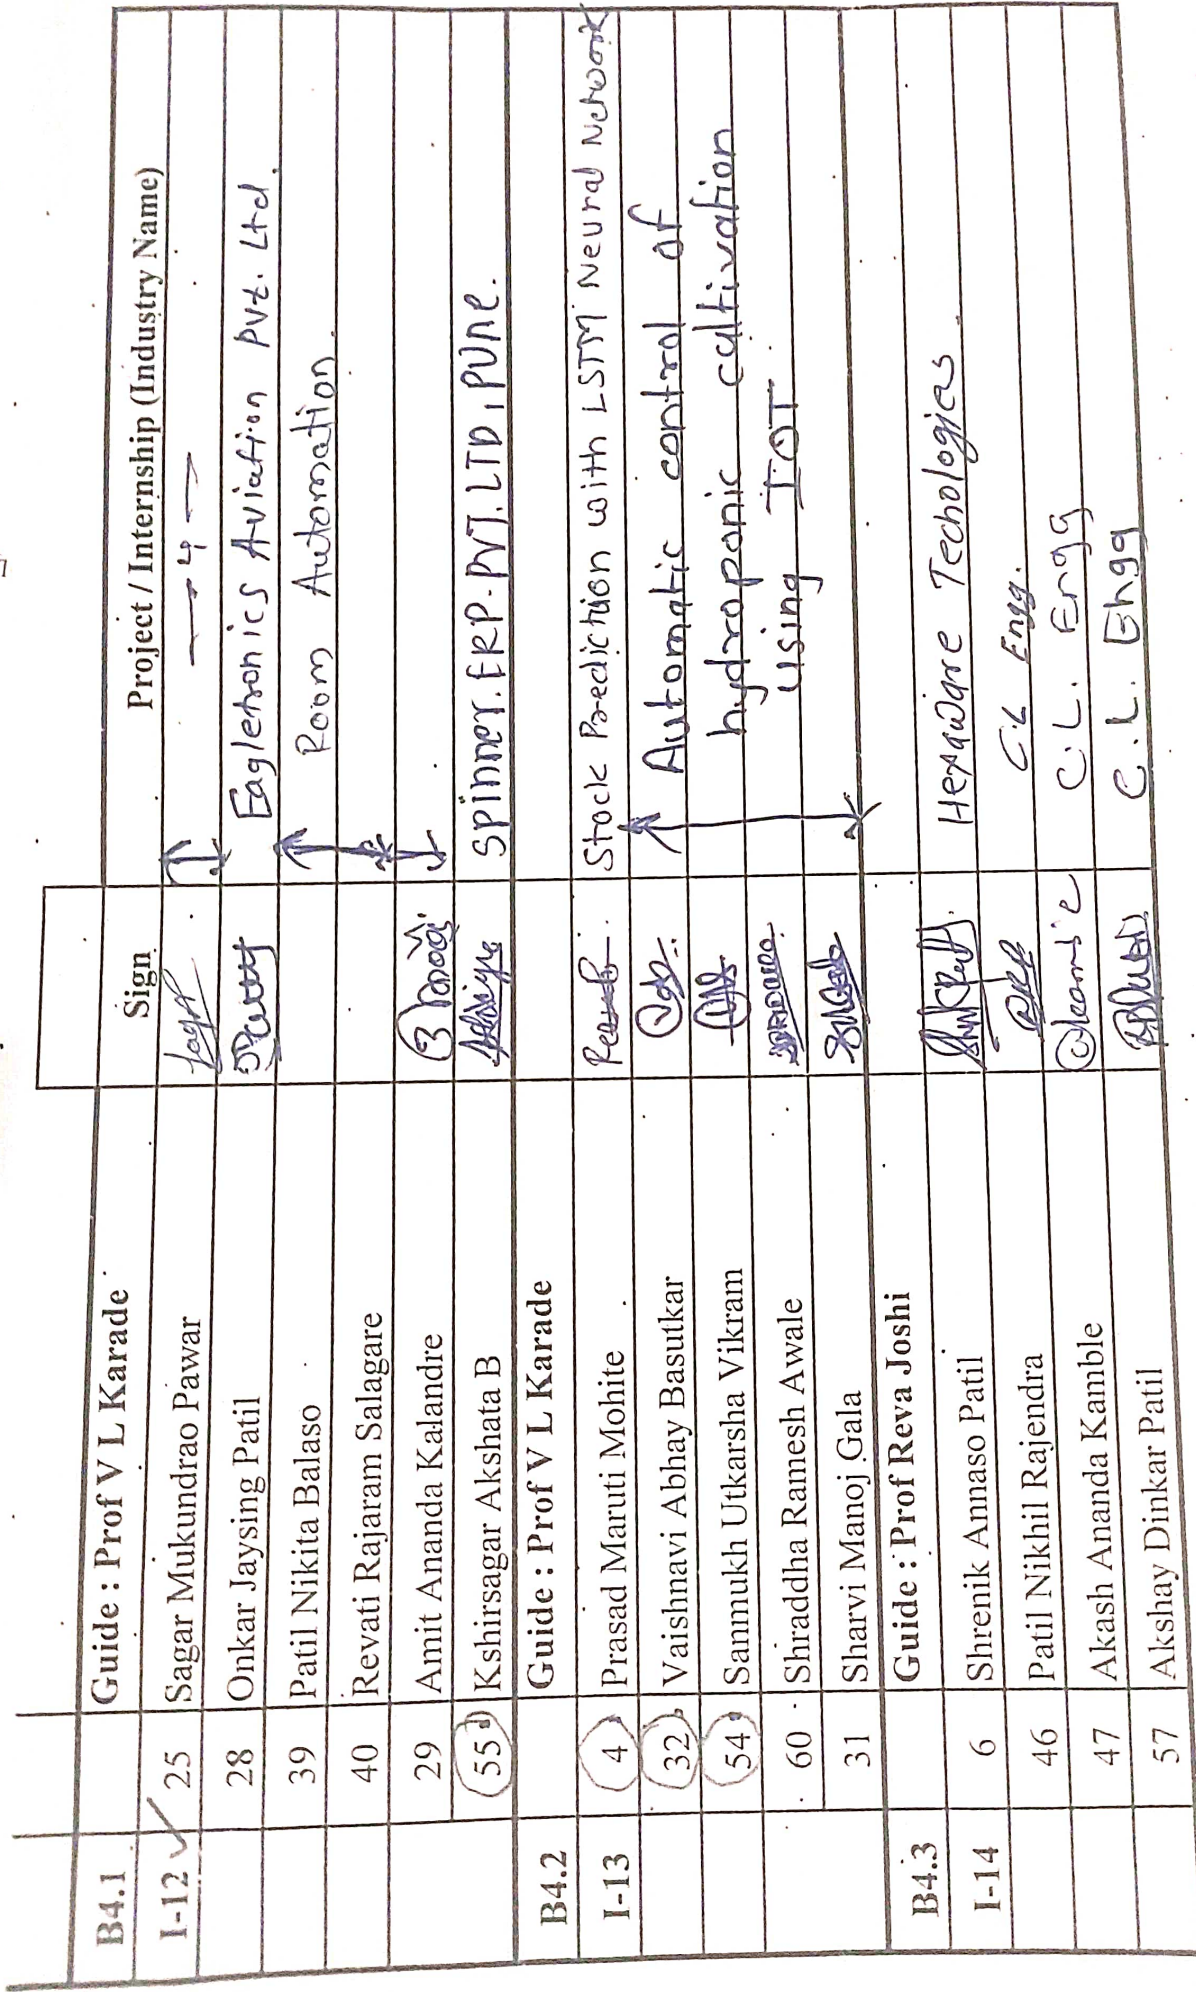 Sign Project / Internship (Industry Name)
B4.1 Guide : Prof V L Karade
I-12 ✓ 25 Sagar Mukundrao Pawar — 4 —
28 Onkar Jaysing Patil Eagletronics Aviation Pvt. Ltd.
39 Patil Nikita Balaso Room Automation
40 Revati Rajaram Salagare
29 Amit Ananda Kalandre
55 Kshirsagar Akshata B Spinner.ERP.PVT.LTD, PUne.
B4.2 Guide : Prof V L Karade
I-13 4 Prasad Maruti Mohite Stock Prediction with LSTM Neural Network
32 Vaishnavi Abhay Basutkar Automatic control of
54 Sanmukh Utkarsha Vikram hydroponic cultivation
60 Shraddha Ramesh Awale using IOT
31 Sharvi Manoj Gala
B4.3 Guide : Prof Reva Joshi
I-14 6 Shrenik Annaso Patil Hexaware Techologies
46 Patil Nikhil Rajendra C.L Engg.
47 Akash Ananda Kamble C.L. Engg
57 Akshay Dinkar Patil C.L. Engg